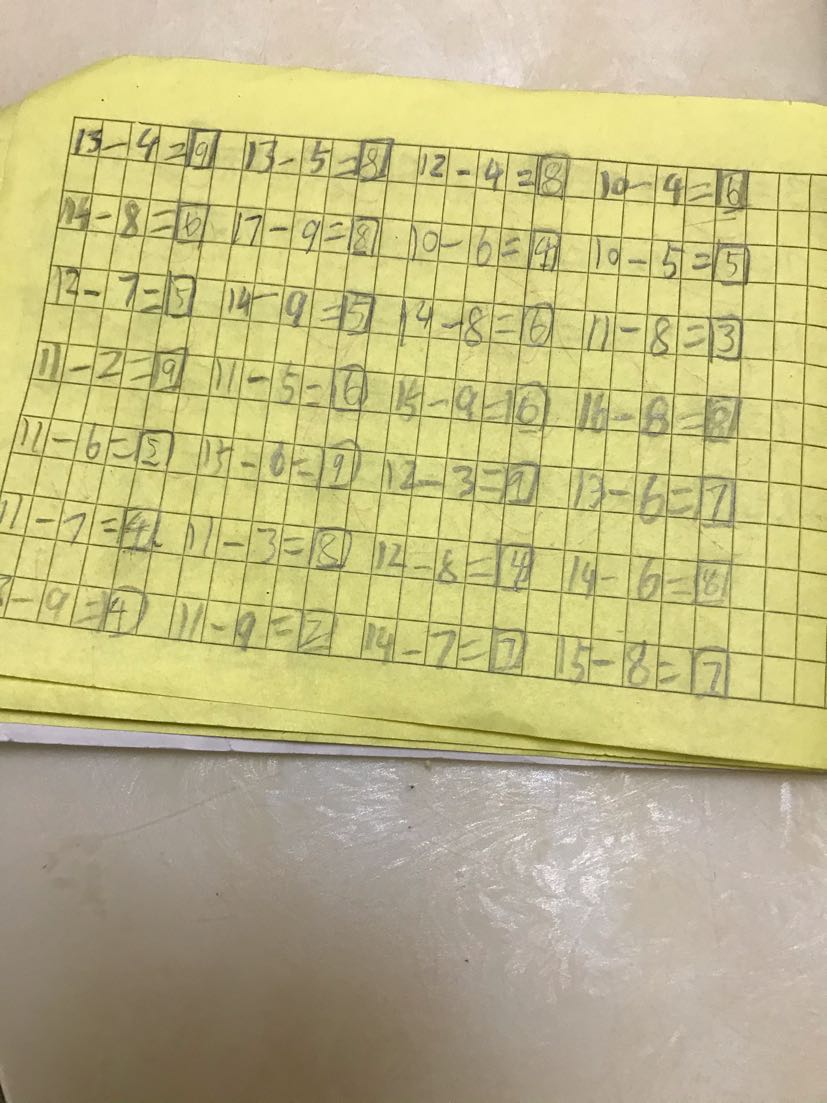 13-4=9 13-5=8 12-4=8 10-4=6
14-8=6 17-9=8 10-6=4 10-5=5
12-7=5 14-9=5 14-8=6 11-8=3
11-2=9 11-5=6 15-9=6 16-8=8
11-6=5 15-6=9 12-3=9 13-6=7
11-7=4 11-3=8 12-8=4 14-6=8
3-9=4 11-9=2 14-7=7 15-8=7